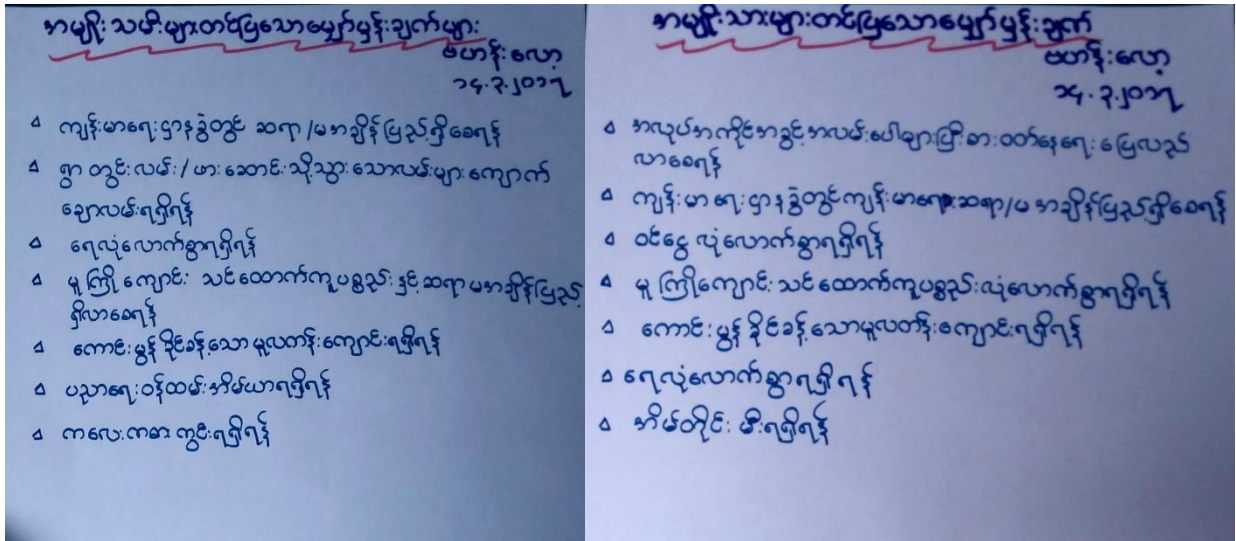 အမျိုးသမီးများတင်ပြသောမျှော်မှန်းချက်များ
ဗဟန်းလော့
၁၄.၃.၂၀၁၇
ကျန်းမာရေးဌာနခွဲတွင် ဆရာ/မအချိန်ပြည့်ရှိစေရန်
ရွာတွင်းလမ်း/ဖားဆောင်းသို့သွားသောလမ်းများကျောက်
ချောလမ်းရရှိရန်
ရေလုံလောက်စွာရရှိရန်
မူကြိုကျောင်း သင်ထောက်ကူပစ္စည်းနှင့်ဆရာမအချိန်ပြည့်
ရှိလာစေရန်
ကောင်းမွန်ခိုင်ခန့်သောမူလတန်းကျောင်းရရှိရန်
ပညာရေးဝန်ထမ်းအိမ်ယာရရှိရန်
ကလေးကစားကွင်းရရှိရန်
အမျိုးသားများတင်ပြသောမျှော်မှန်းချက်
ဗဟန်းလော့
၁၄.၃.၂၀၁၇
အလုပ်အကိုင်အခွင့်အလမ်းပေါများပြီးစားဝတ်နေရေးပြေလည်
လာစေရန်
ကျန်းမာရေးဌာနခွဲတွင်ကျန်းမာရေးဆရာ/မအချိန်ပြည့်ရှိစေရန်
ဝင်ငွေလုံလောက်စွာရရှိရန်
မူကြိုကျောင်းသင်ထောက်ကူပစ္စည်းလုံလောက်စွာရရှိရန်
ကောင်းမွန်ခိုင်ခန့်သောမူလတန်းကျောင်းရရှိရန်
ရေလုံလောက်စွာရရှိရန်
အိမ်တိုင်းမီးရရှိရန်